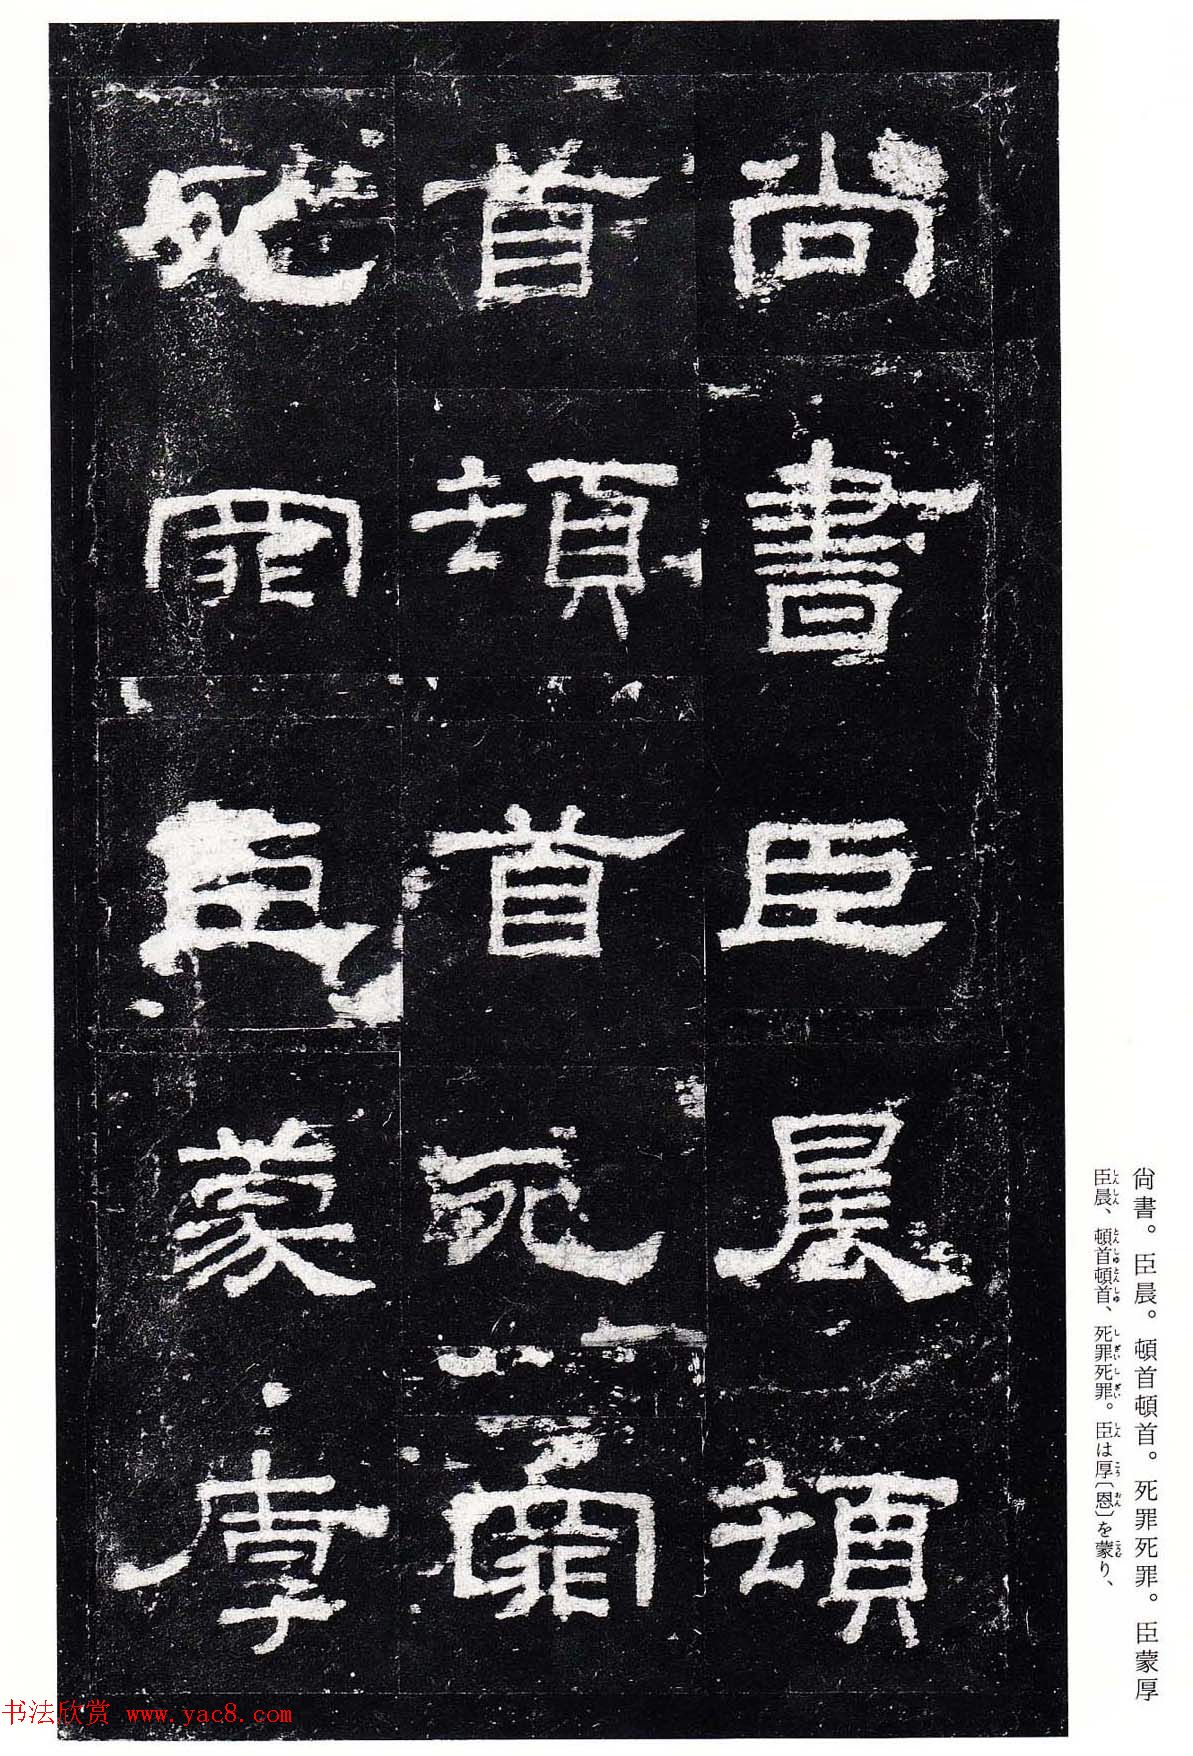 尚書臣晨頓
首頓首死罪
死罪臣蒙厚
尙書。臣晨。頓首頓首。死罪死罪。臣蒙厚
臣晨、頓首頓首、死罪死罪。臣は厚〔恩〕を蒙り、
书法欣赏 www.yac8.com